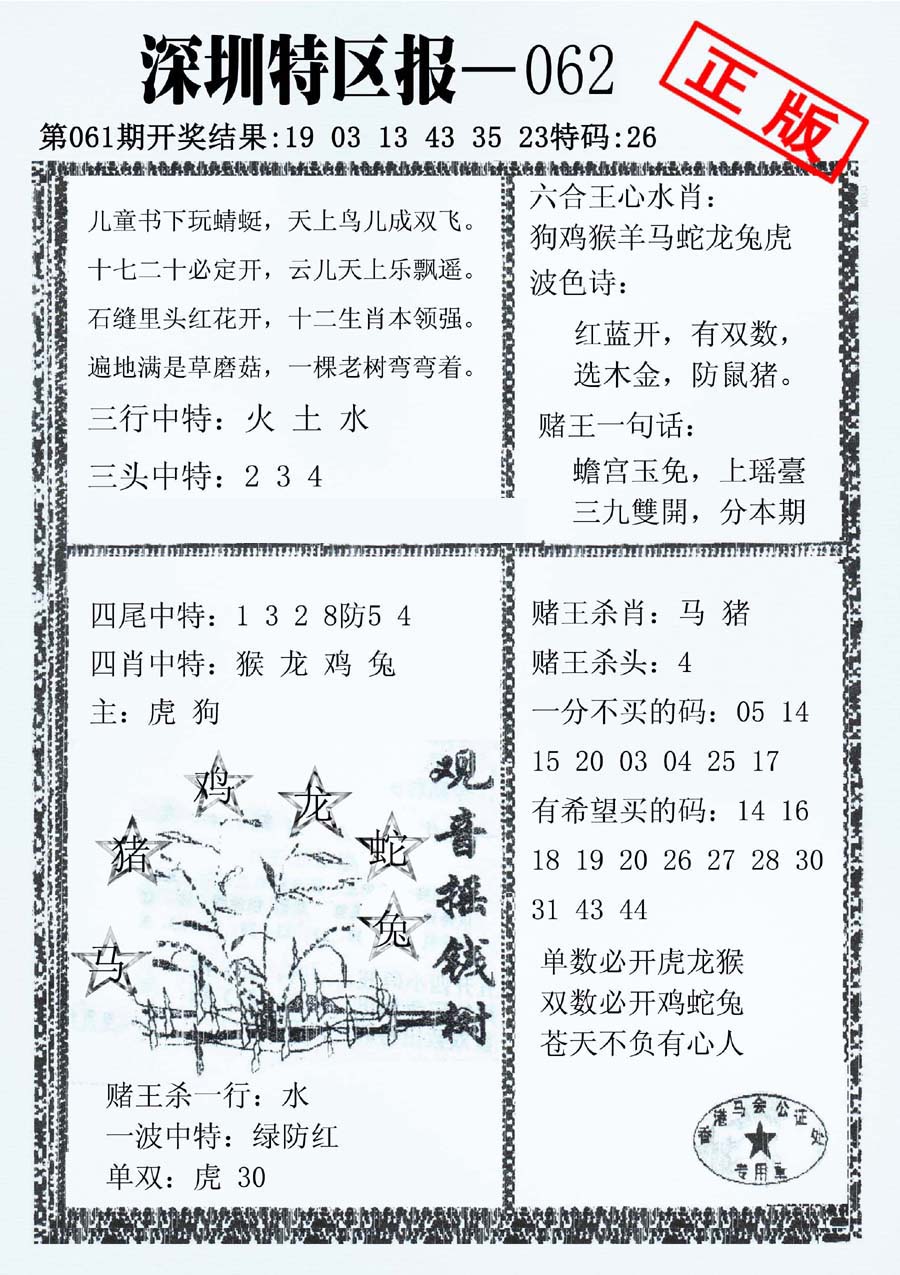 深圳特区报—062
正版
第061期开奖结果:19 03 13 43 35 23特码:26
儿童书下玩蜻蜓，天上鸟儿成双飞。
十七二十必定开，云儿天上乐飘遥。
石缝里头红花开，十二生肖本领强。
遍地满是草磨菇，一棵老树弯弯着。
三行中特：火 土 水
三头中特：2 3 4
六合王心水肖：
狗鸡猴羊马蛇龙兔虎
波色诗：
红蓝开，有双数，
选木金，防鼠猪。
赌王一句话：
蟾宫玉免，上瑶臺
三九雙開，分本期
四尾中特：1 3 2 8防5 4
四肖中特：猴 龙 鸡 兔
主：虎 狗
鸡
龙
猪
蛇
兔
马
观音摇钱树
赌王杀一行：水
一波中特：绿防红
单双：虎 30
赌王杀肖：马 猪
赌王杀头：4
一分不买的码：05 14
15 20 03 04 25 17
有希望买的码：14 16
18 19 20 26 27 28 30
31 43 44
单数必开虎龙猴
双数必开鸡蛇兔
苍天不负有心人
香港马会公证处
专用章